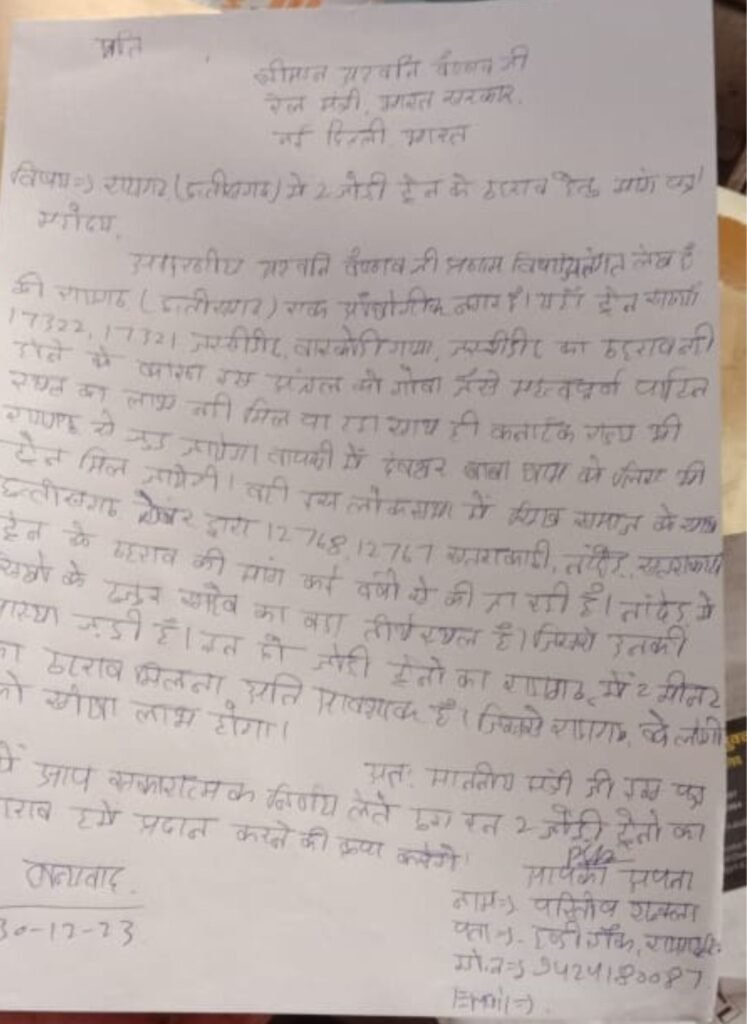 प्रति
श्रीमान अश्वनि वैष्णव जी
रेल मंत्री, भारत सरकार,
नई दिल्ली, भारत
विषय=> रायगढ़ (छत्तीसगढ़) में 2 जोडी ट्रेन के ठहराव हेतु मांग पत्र
महोदय,
आदरणीय अश्वनि वैष्णव जी प्रणाम विषयांतर्गत लेख है
की रायगढ़ (छत्तीसगढ़) एक औद्योगीक नगर है। यहाँ ट्रेन
17322, 17321 जसीडीह, वास्कोडिगामा, जसीडीह का ठहराव नही
होने के कारण इस अंचल को गोवा जैसे महत्वपूर्ण पर्यटन
स्थल का लाभ नही मिल पा रहा साथ ही कर्नाटक राज्य भी
रायगढ़ से जुड जायेगा वापसी में देवघर बाबा धाम के लिए भी
ट्रेन मिल जायेगी। वही इस लोकसभा में सिख समाज के साथ
छत्तीसगढ़ चेम्बर द्वारा 12768, 12767 सतरागाछी, नांदेड,
ट्रेन के ठहराव की मांग कई वर्षो से की जा रही है। नांदेड में
सिखो के हजुर साहेब का बडा तीर्थस्थल है। जिससे उनकी
आस्था जुडी है। इन दो जोडी ट्रेनो का रायगढ़ में 2 मीनट
का ठहराव मिलना अति आवश्यक है। जिससे रायगढ़ के लोगो
को सीधा लाभ होगा।
अतः माननीय मंत्री जी इस पर
में आप सकारात्मक निर्णय लेते हुए इन 2 जोडी ट्रेनो का
ठहराव हमें प्रदान करने की कृपा करेगे।
धन्यवाद
30-12-23
आपका अपना
नाम=>
पता=> चौक, रायगढ़
मो.न=> 9424180087
Email=>